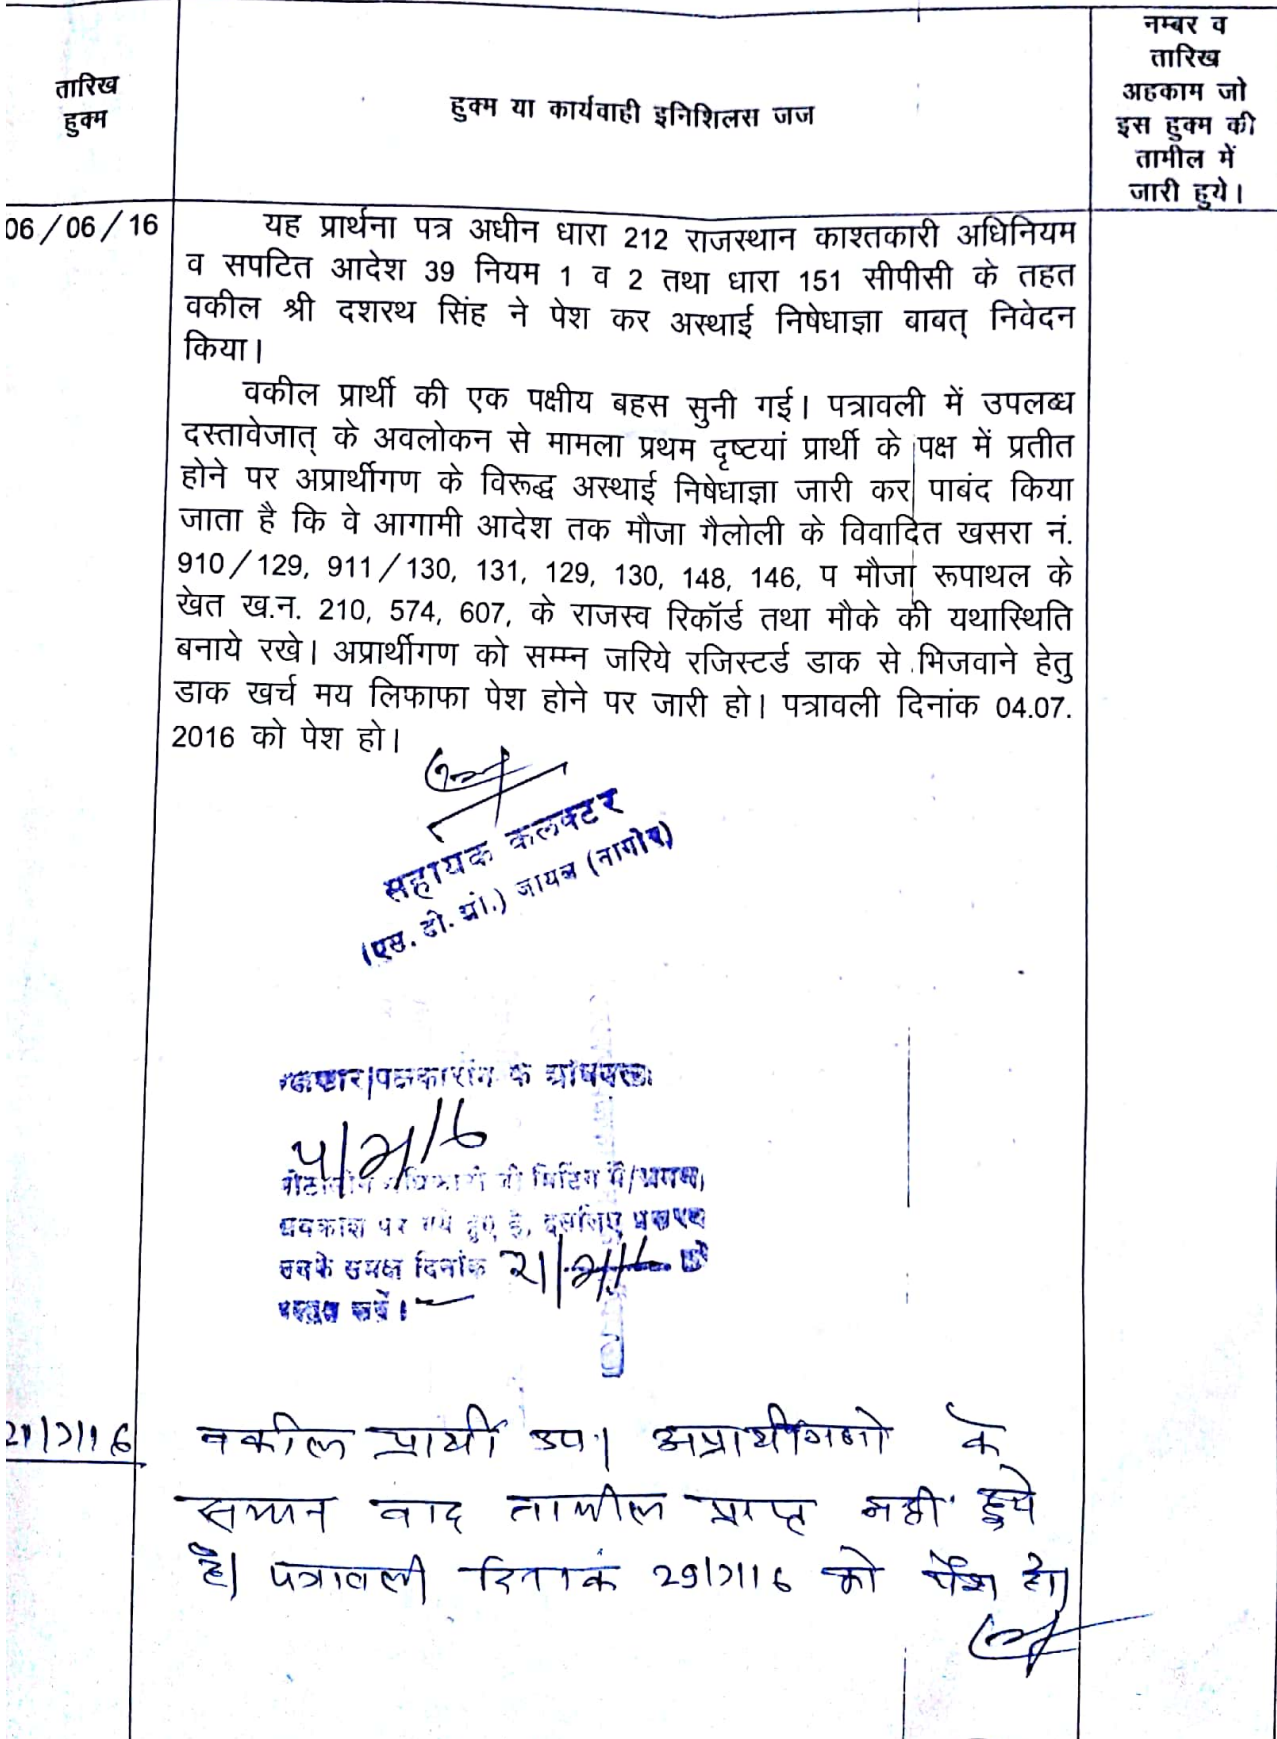 तारिख
हुक्म
हुक्म या कार्यवाही इनिशिलस जज
नम्बर व
तारिख
अहकाम जो
इस हुक्म की
तामील में
जारी हुये।
06/06/16
यह प्रार्थना पत्र अधीन धारा 212 राजस्थान काश्तकारी अधिनियम
व सपटित आदेश 39 नियम 1 व 2 तथा धारा 151 सीपीसी के तहत
वकील श्री दशरथ सिंह ने पेश कर अस्थाई निषेधाज्ञा बाबत् निवेदन
किया।
वकील प्रार्थी की एक पक्षीय बहस सुनी गई। पत्रावली में उपलब्ध
दस्तावेजात् के अवलोकन से मामला प्रथम दृष्टयां प्रार्थी के पक्ष में प्रतीत
होने पर अप्रार्थीगण के विरूद्ध अस्थाई निषेधाज्ञा जारी कर पाबंद किया
जाता है कि वे आगामी आदेश तक मौजा गैलोली के विवादित खसरा नं.
910/129, 911/130, 131, 129, 130, 148, 146, प मौजा रूपाथल के
खेत ख.न. 210, 574, 607, के राजस्व रिकॉर्ड तथा मौके की यथास्थिति
बनाये रखे। अप्रार्थीगण को सम्म्न जरिये रजिस्टर्ड डाक से भिजवाने हेतु
डाक खर्च मय लिफाफा पेश होने पर जारी हो। पत्रावली दिनांक 04.07.
2016 को पेश हो।
सहायक कलक्टर
(एस. डी. ओ.) जायल (नागौर)
मिटिंग में/
अवकाश पर गये हुए है, इसलिए
उनके समक्ष दिनांक
21/7/16
वकील प्रार्थी उप। अप्रार्थीगणो के
सम्मन बाद तामील प्राप्त नही हुये
है। पत्रावली दिनांक 29/7/16 को पेश हो।